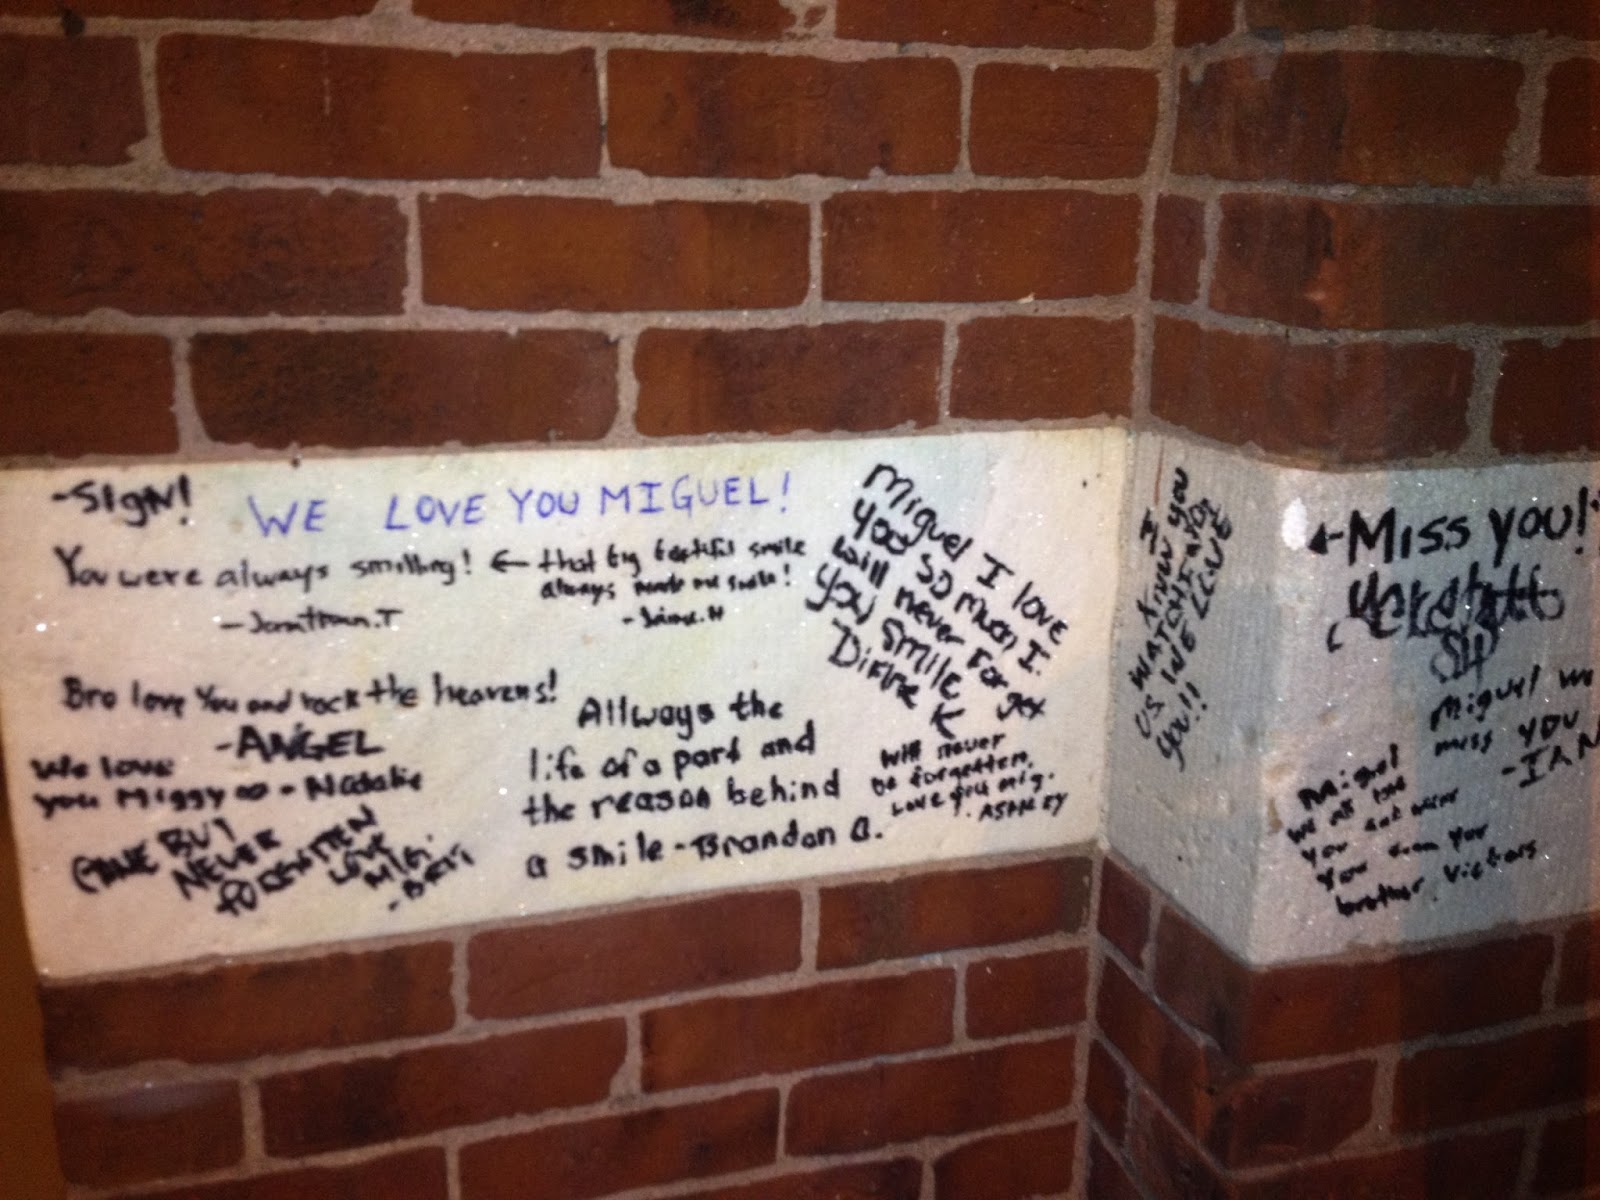 -SIGN!
WE LOVE YOU MIGUEL!
You were always smilling!
← that big beatiful smile
always made me smile!
- Jonathan.T
- Jaime.H
Bro love You and rock the heavens!
- ANGEL
We love
you Miggy ∞ - Natalie
GONE BUT
NEVER
FORGETTEN
LOVE
MIG.
Allways the
life of a part and
the reason behind
a smile - Brandon C.
Miguel I love
you so much I
will never forget
you smile
←
will never
be forgotten.
Love you mig.
ASHLEY
I
KNW YOU
WATCHI
US
YOU!!
← Miss you!
Miguel we
miss you
- IAN
Miguel
we all
you
you
brother